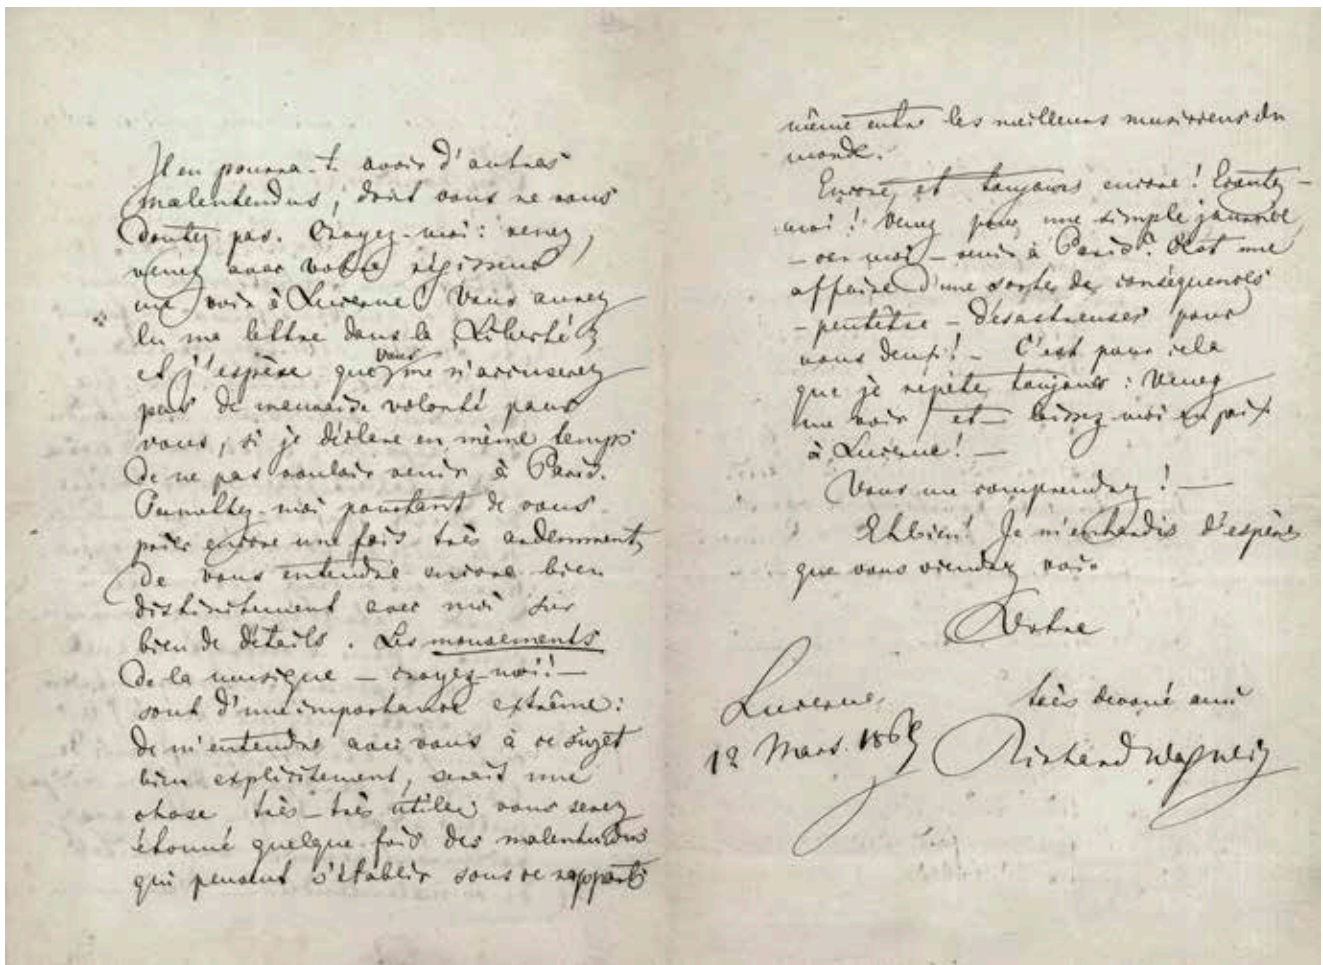 Il en pourra-t avoir d'autres
malentendus, dont vous ne vous
doutez pas. Croyez-moi: venez,
venez avec votre régisseur,
me voir à Lucerne! Vous aurez
lu ma lettre dans la Liberté,
et j'espère que vous me n'accuserez
pas de mauvaise volonté pour
vous, si je déclare en même temps
de ne pas vouloir venir à Paris.
Permettez-moi pourtant de vous
prier encore une fois très ardemment,
de vous entendre encore bien
distinctement avec moi sur
bien de détails. Les mouvements
de la musique — croyez-moi! —
sont d'une importance extrême:
de m'entendre avec vous à ce sujet
bien explicitement, serait une
chose très-très utile; vous serez
étonné quelque fois des malentendus
qui peuvent s'établir sous ce rapport,
même entre les meilleurs musiciens du
monde.
Encore, et toujours encore! Ecoutez-
moi! Venez pour une simple journée,
— moi — venir à Paris? C'est une
affaire d'une sorte de conséquences
— peutêtre — désastreuses pour
nous deux! — C'est pour cela
que je répète toujours: Venez
me voir, et — laissez-moi en paix
à Lucerne! —
Vous me comprendrez! —
Eh bien! Je m'entends d'espérer
que vous viendrez voir
Votre
très dévoué ami
Richard Wagner
Lucerne,
12 Mars. 1869